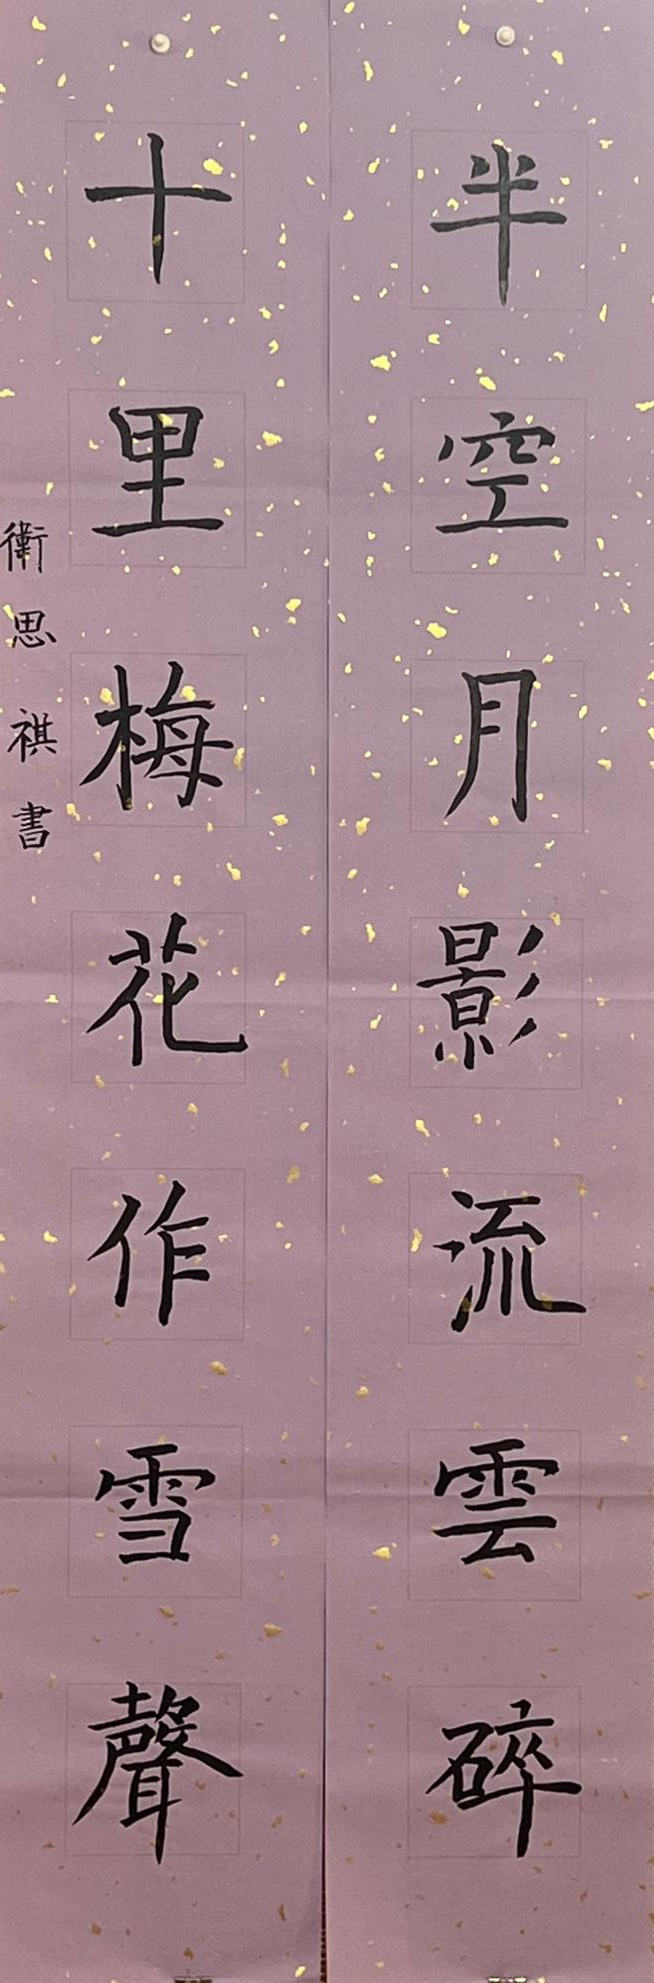 半空月影流雲碎
十里梅花作雪聲
衛思祺書